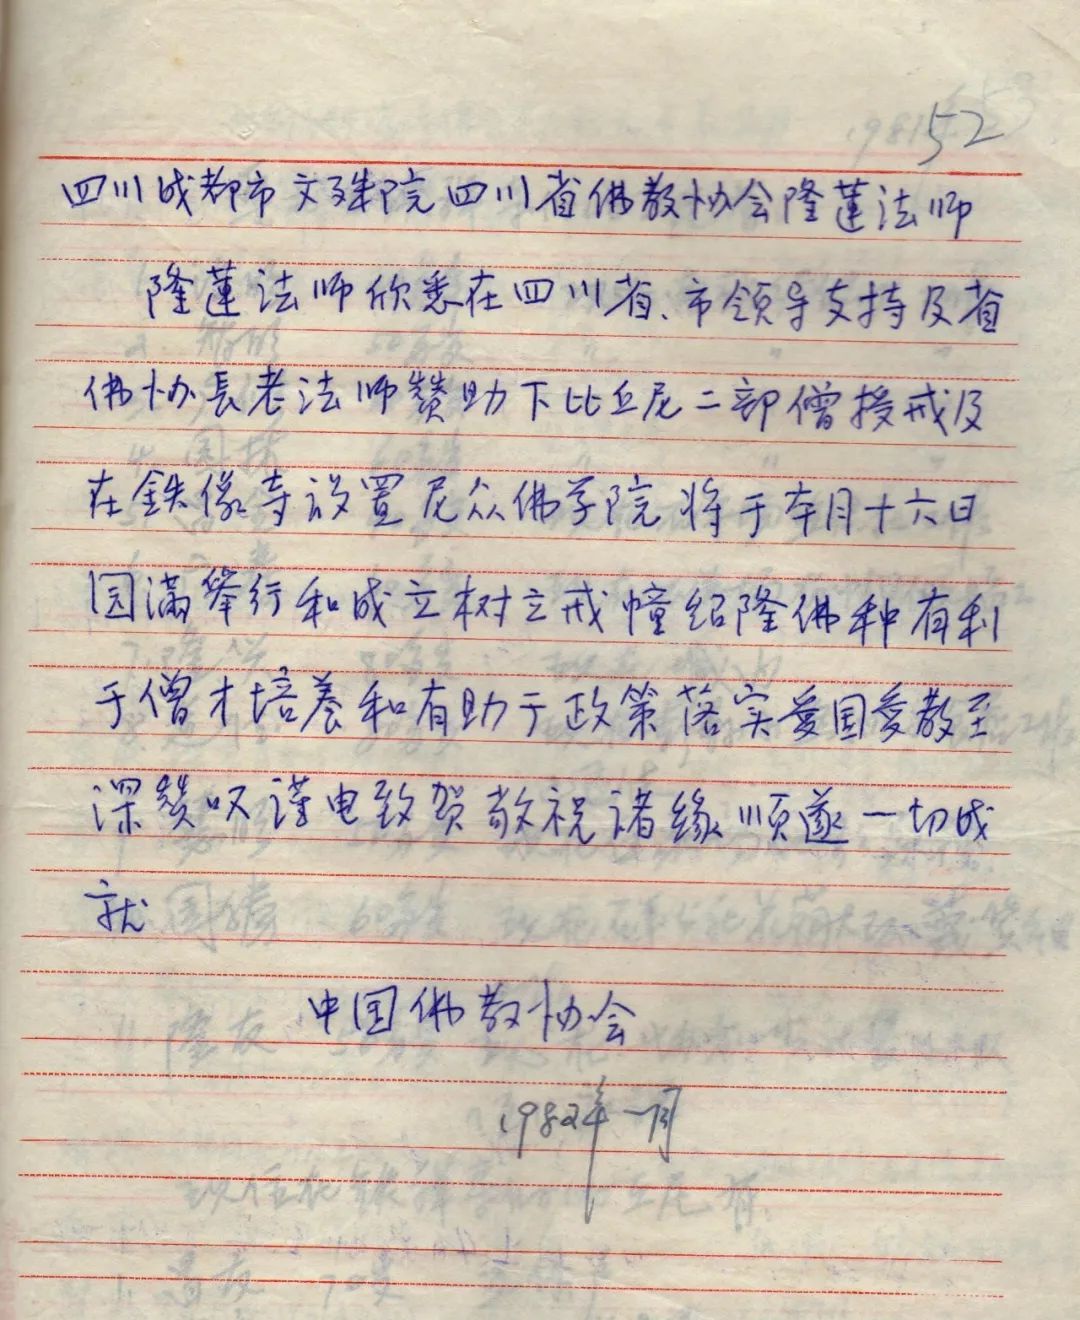 52
四川成都市文殊院四川省佛教协会隆蓮法师
隆蓮法师欣悉在四川省、市领导支持及省
佛协長老法师赞助下比丘尼二部僧授戒及
在鉄像寺设置尼众佛学院将于本月十六日
园满举行和成立树立戒幢绍隆佛种有利
于僧才培养和有助于政策落实爱国爱教至
深赞叹谨电致贺敬祝诸缘顺遂一切成
就
中国佛教协会
1982年一月